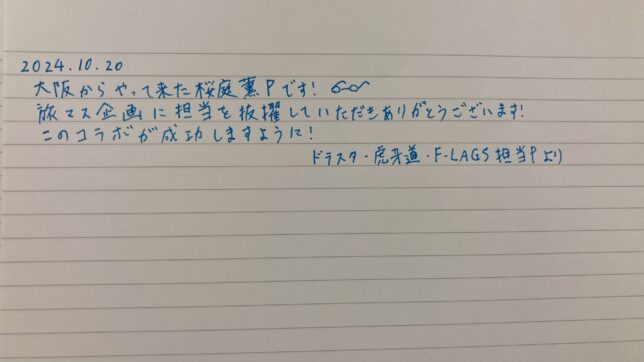 2024.10.20
大阪からやって来た桜庭薫Pです!
旅マス企画に担当を抜擢していただきありがとうございます!
このコラボが成功しますように!
ドラスタ・虎牙道・F-LAGS担当Pより